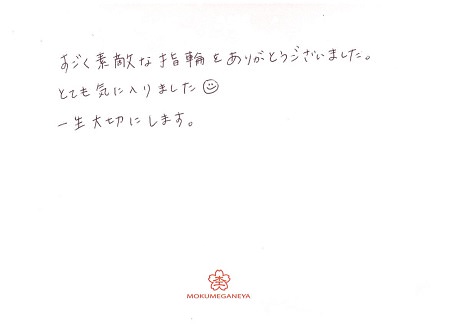 すごく素敵な指輪をありがとうございました。
とても気に入りました☺
一生大切にします。
MOKUMEGANEYA